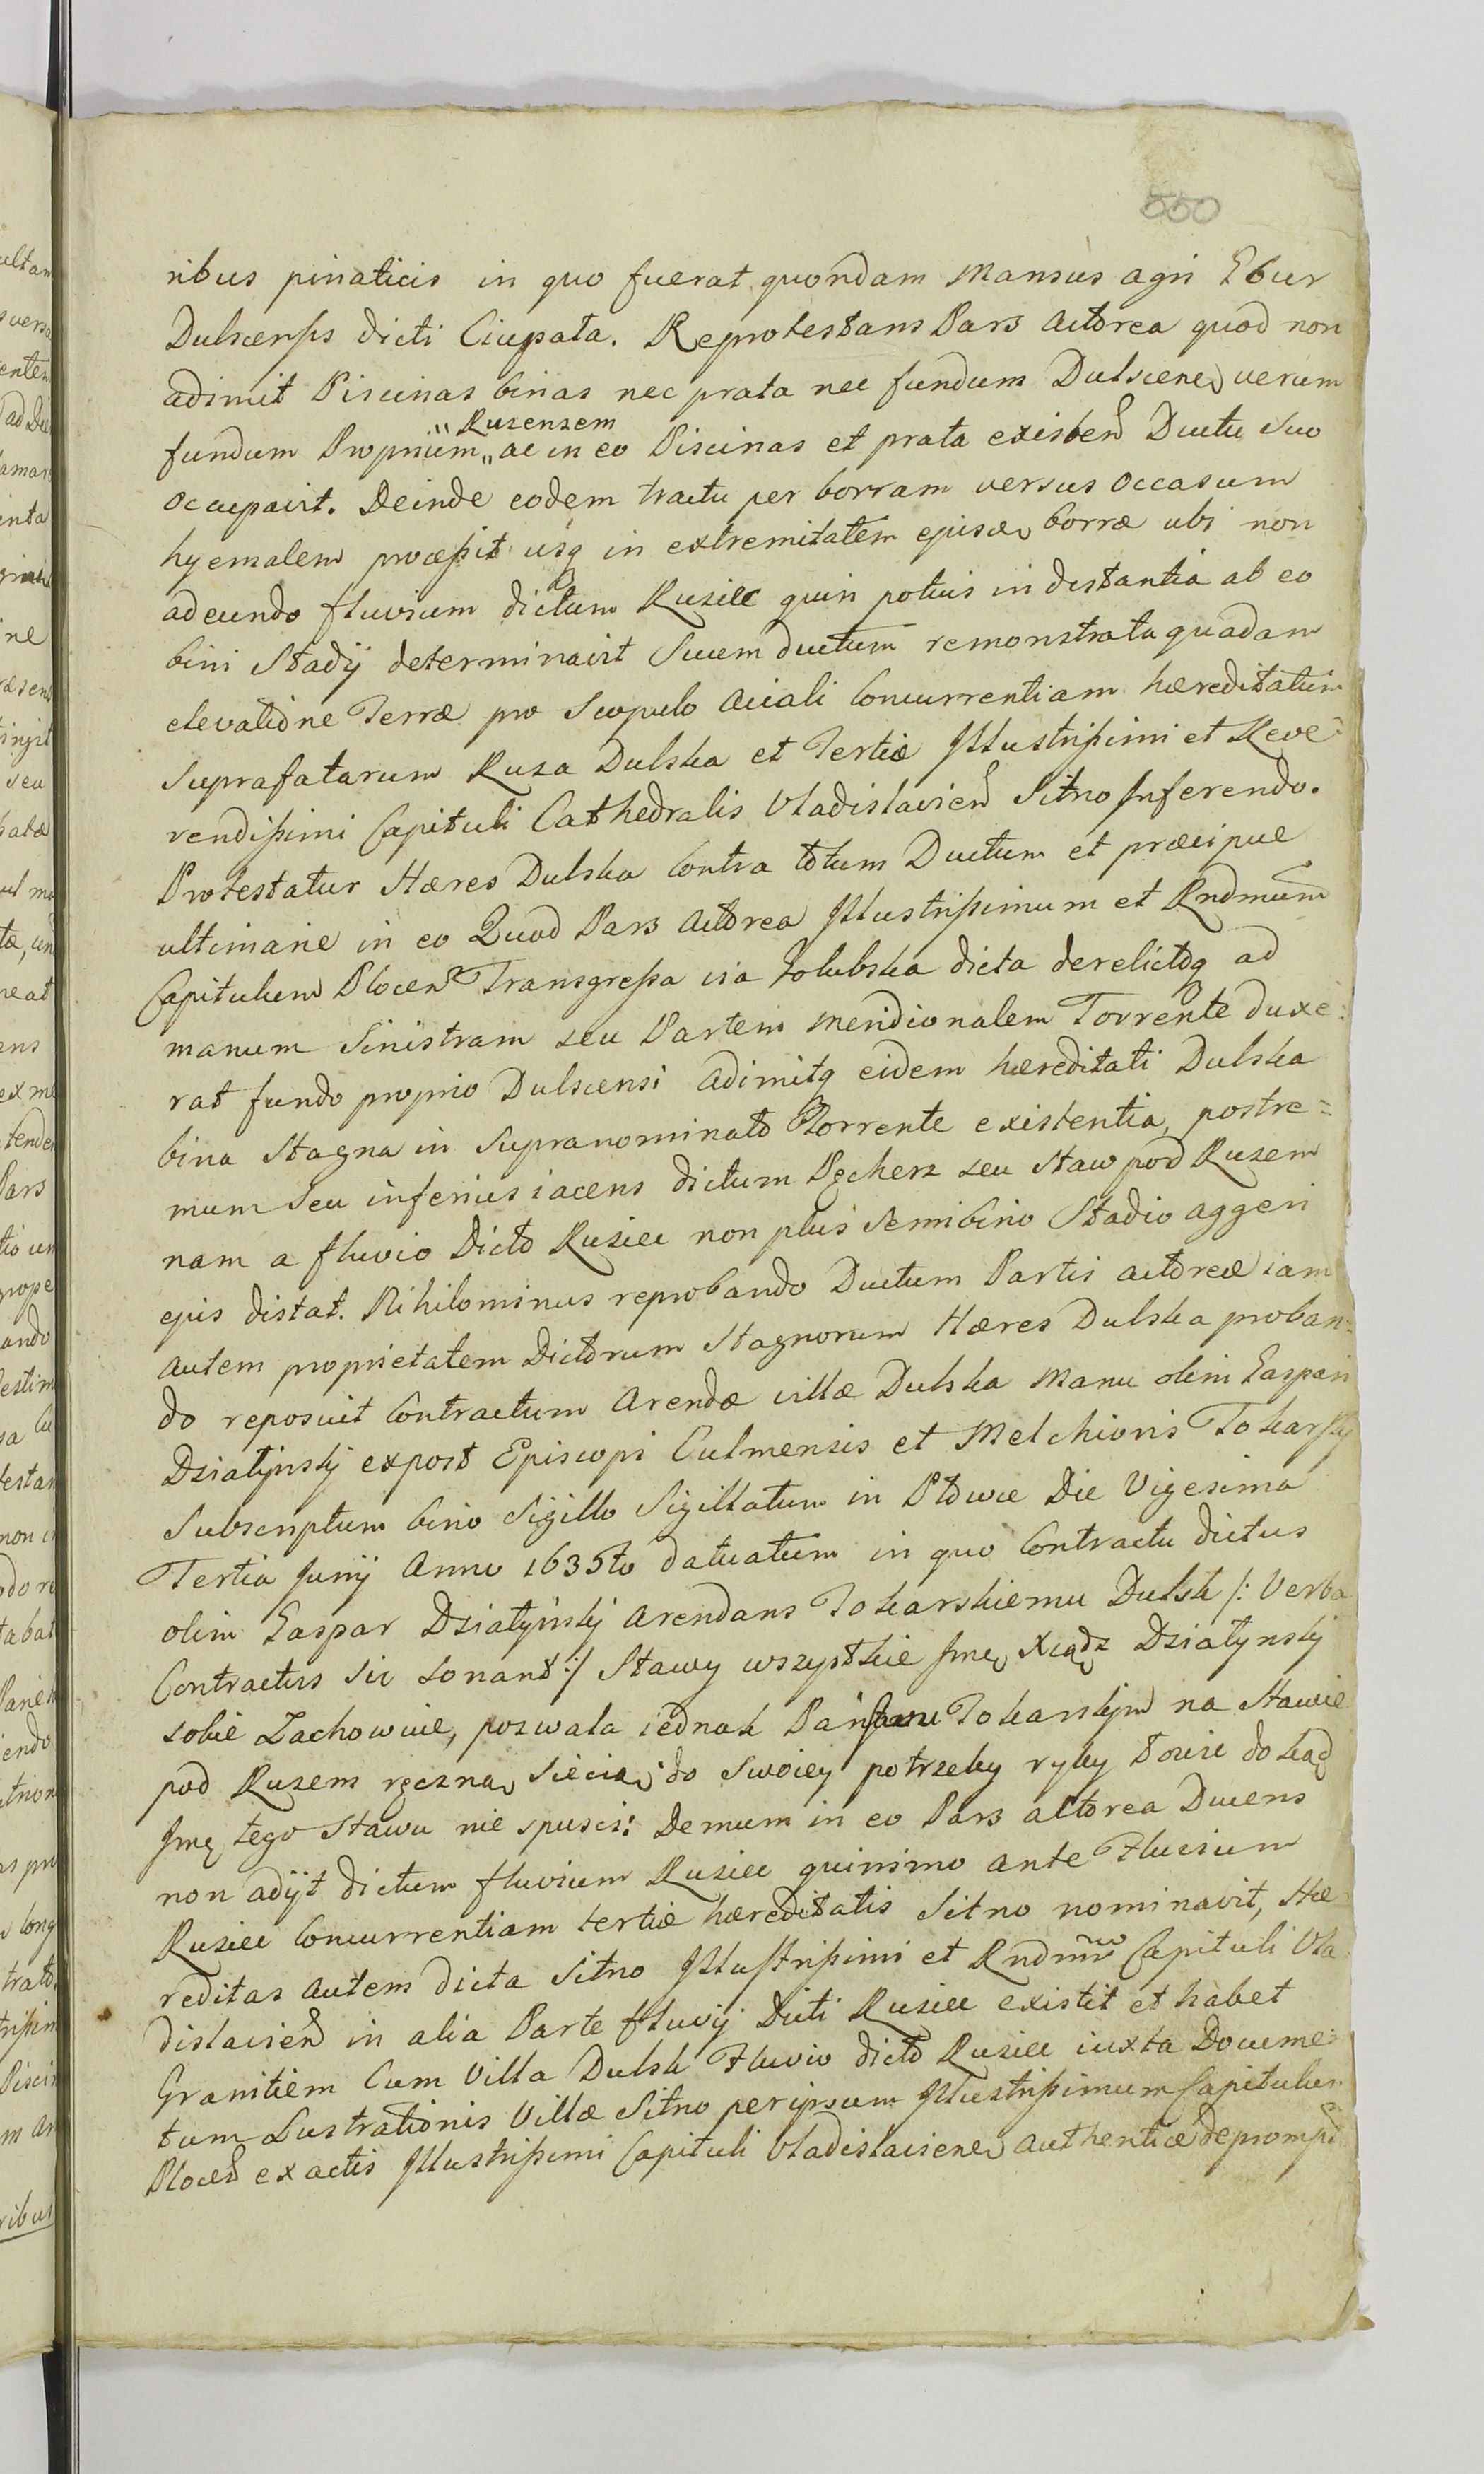 550
ribus pinaticis in quo fuerat quondam Mansus agri Ebur
Dulscensis dicti Ciupata. Reprotestans Pars Actorea quod non
adimit Piscinas binas nec prata nec fundum Dulscene verum
fundum Proprium „ Ruzensem „ ac in eo Piscinas et prata existen Ductu suo
occupavit. Deinde eodem tractu per borram versus occasum
hyemalem processit usq in extremitatem ejusde borræ ubi non
adeundo fluvium dictum Ruziec quin potius in distantia ab eo
bini Stadij determinavit Suum ductum remonstrata quadam
elevatione Terræ pro Scopulo Aciali Concurrentiam hæreditatum
suprafatarum Ruza Dulska et Tertiæ Illustrissimi et Reve=
rendissimi Capituli Cathedralis Vladislavien Sitno Inferendo.
Protestatur Hæres Dulska Contra totum Ductum et præcipue
ultimarie in eo Quod Pars Actorea Illustrissimum et Rndmum
Capitulum Plocen Transgressa via Golubska dicta derelictoq ad
manum Sinistram seu Partem meridionalem Torrente duxe:
rat fundo proprio Dulscensi adimitq eidem hæreditati Dulska
bina Stagna in Supranominato Torrente existentia, postre=
mum seu inferius iacens dictum Pęcherz seu Staw pod Ruzem
nam a fluvio Dicto Ruziec non plus Semibino Stadio aggeri
ejus distat. Nihilominus reprobando Ductum Partis actoreæ iam
autem proprietatem Dictorum Stagnorum Hæres Dulska proban=
do reposuit Contractum Arendæ villæ Dulska Manu olim Gaspari
Dzialynskj expost Episcopi Culmensis et Melchioris Tokarskj
Subscriptum bino Sigillo Sigillatum in Plowce Die Vigesima
Tertia Junij Anno 1635to datuatum in quo Contractu dictus
olim Gaspar Dzialyńskj arendans Tokarskiemu Dulsk /: Verba
Contractus sic sonant :/ Stawy wszystkie Jmę Xiądz Dzialynskj
sobie Zachowuie, pozwala iednak Panu Tokarskjm na Stawie
pod Ruzem ręczną Siecią do Swoiey potrzeby ryby Łowic dokąd
Jmę tego Stawu nie spusci: Demum in eo Pars actorea Ducens
non adijt dictum fluvium Ruziec quinimo ante Fluvium
Ruziec Concurrentiam tertiæ hæreditatis Sitno nominavit, Hæ
reditas autem dicta Sitno Illustrissimi et Rndmi Capituli Vla
dislavien in alia Parte fluvij Dicti Ruziec existit et habet
Granitiem Cum Villa Dulsk Fluvio dicto Ruziec iuxta Docume=
tum Lustrationis Villæ Sitno per ipsum Illustrissimum Capitulum
Plocen ex actis Illustrissimi Capituli Vladislaviene authentice deprompt